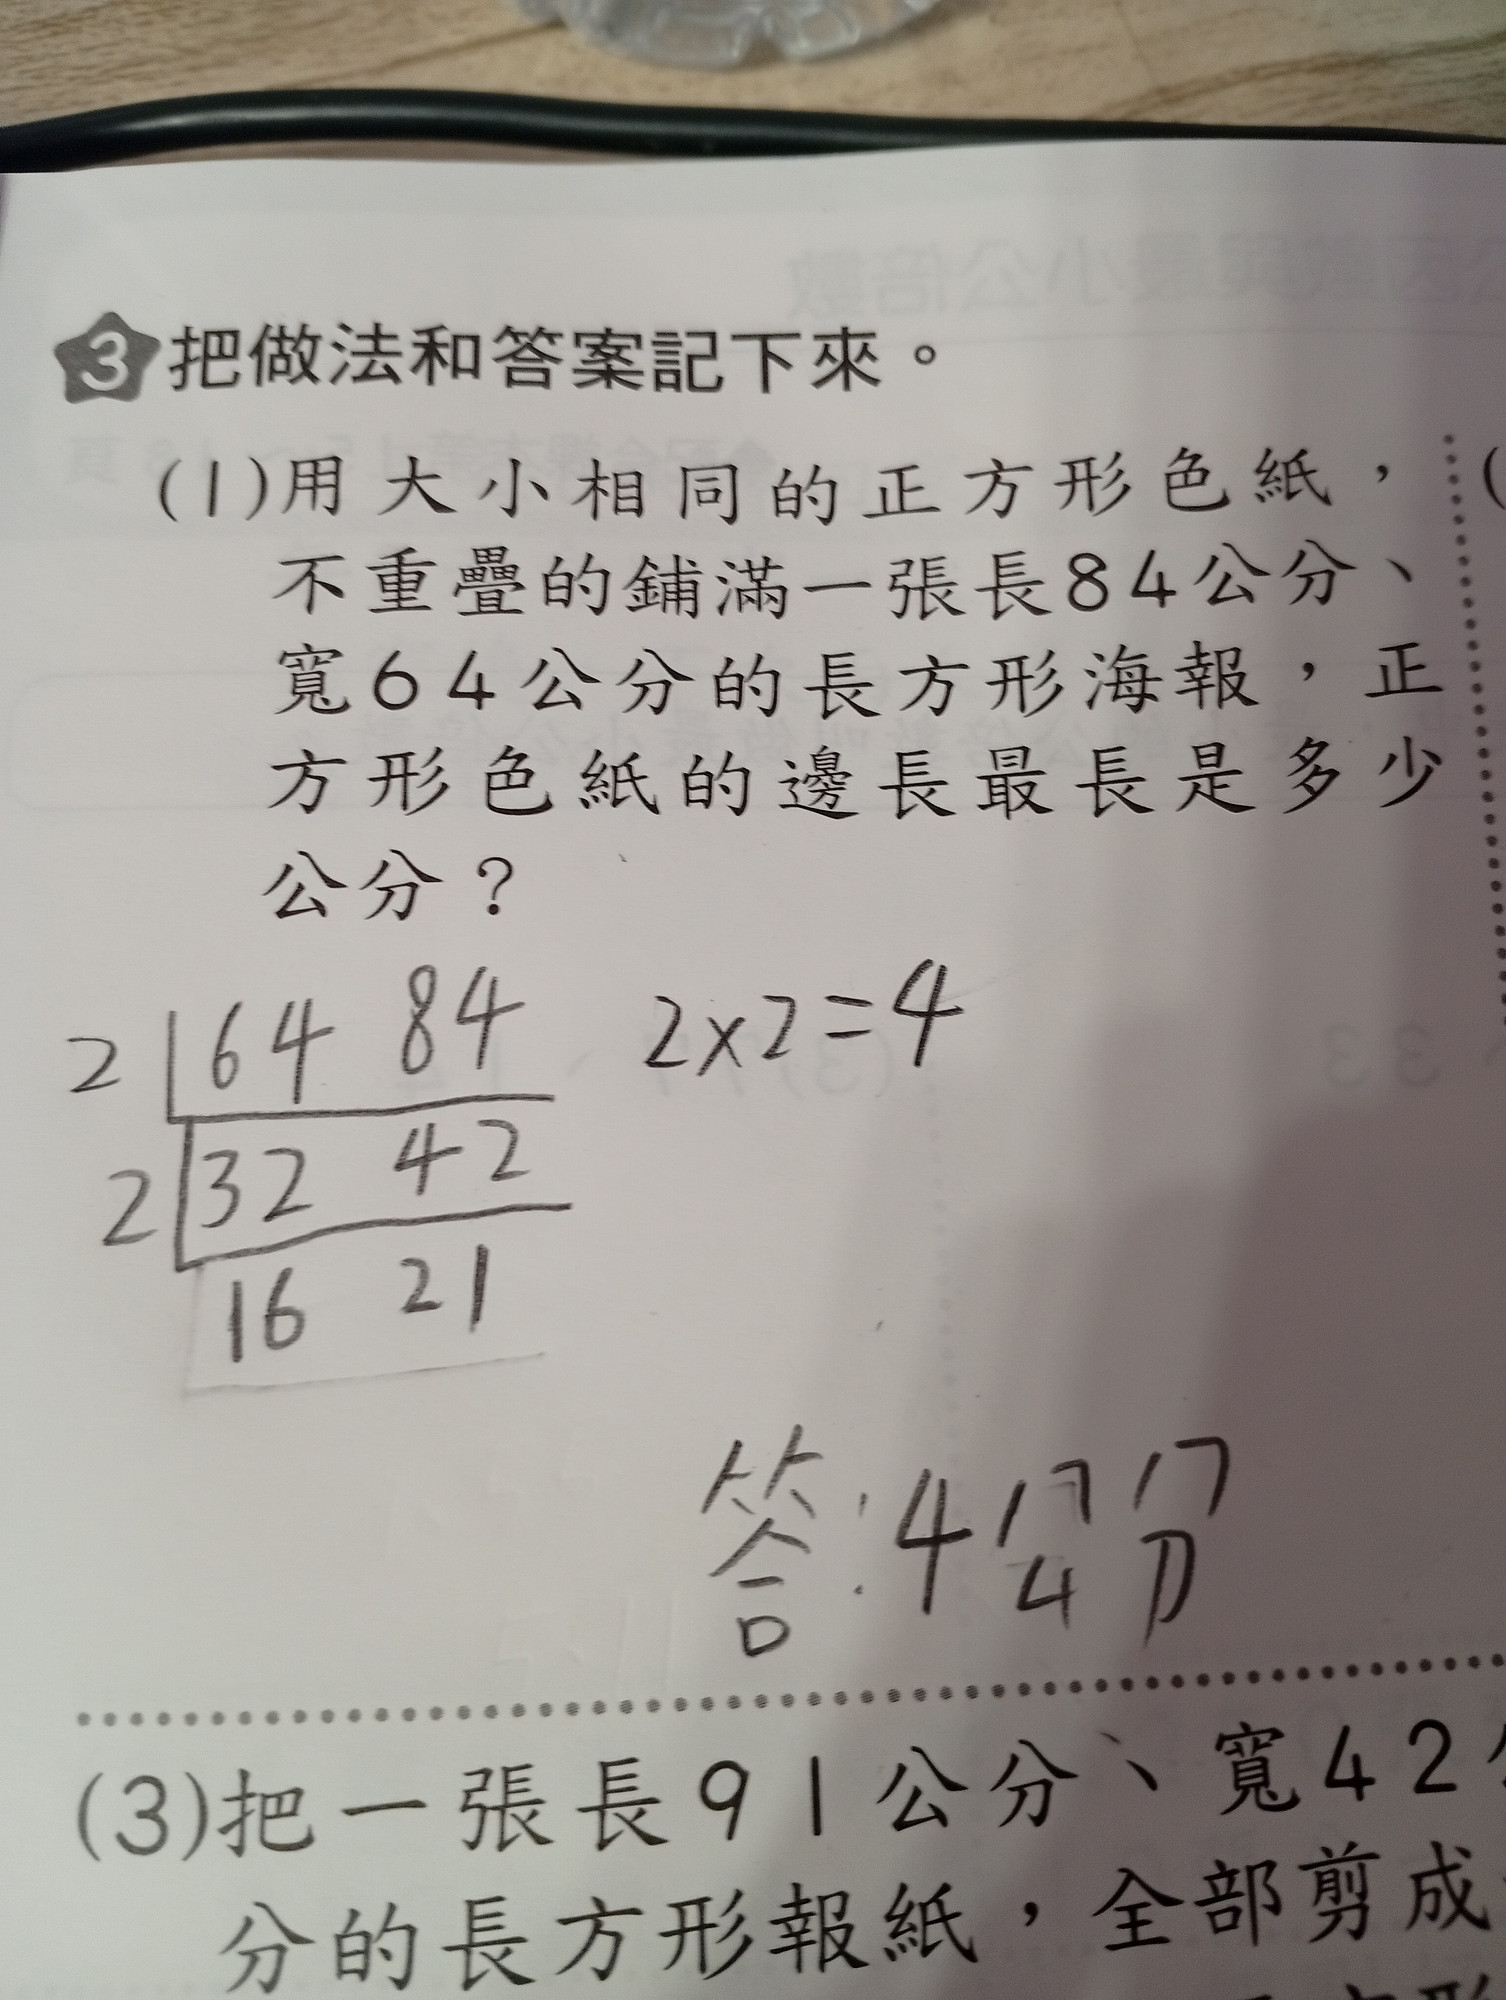 3 把做法和答案記下來。
(1)用大小相同的正方形色紙，
不重疊的鋪滿一張長84公分、
寬64公分的長方形海報，正
方形色紙的邊長最長是多少
公分？
2 64 84 2×2=4
2 32 42
16 21
答:4公分
(3)把一張長91公分、寬42
分的長方形報紙，全部剪成